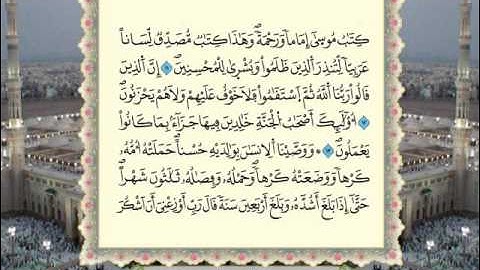 كِتَٰبُ مُوسَىٰٓ إِمَاماً وَرَحْمَةً وَهَٰذَا كِتَٰبٌ مُّصَدِّقٌ لِّسَاناً
عَرَبِيّاً لِّتُنذِرَ ٱلَّذِينَ ظَلَمُواْ وَبُشْرَىٰ لِلْمُحْسِنِينَ إِنَّ ٱلَّذِينَ
قَالُواْ رَبُّنَا ٱللَّهُ ثُمَّ ٱسْتَقَٰمُواْ فَلَا خَوْفٌ عَلَيْهِمْ وَلَا هُمْ يَحْزَنُونَ
أُوْلَٰٓئِكَ أَصْحَٰبُ ٱلْجَنَّةِ خَٰلِدِينَ فِيهَا جَزَآءَۢ بِمَا كَانُواْ
يَعْمَلُونَ وَوَصَّيْنَا ٱلْإِنسَٰنَ بِوَٰلِدَيْهِ حُسْناً حَمَلَتْهُ أُمُّهُۥ
كَرْهاً وَوَضَعَتْهُ كَرْهاً وَحَمْلُهُۥ وَفِصَٰلُهُۥ ثَلَٰثُونَ شَهْراً
حَتَّىٰٓ إِذَا بَلَغَ أَشُدَّهُۥ وَبَلَغَ أَرْبَعِينَ سَنَةً قَالَ رَبِّ أَوْزِعْنِىٓ أَنْ أَشْكُرَ